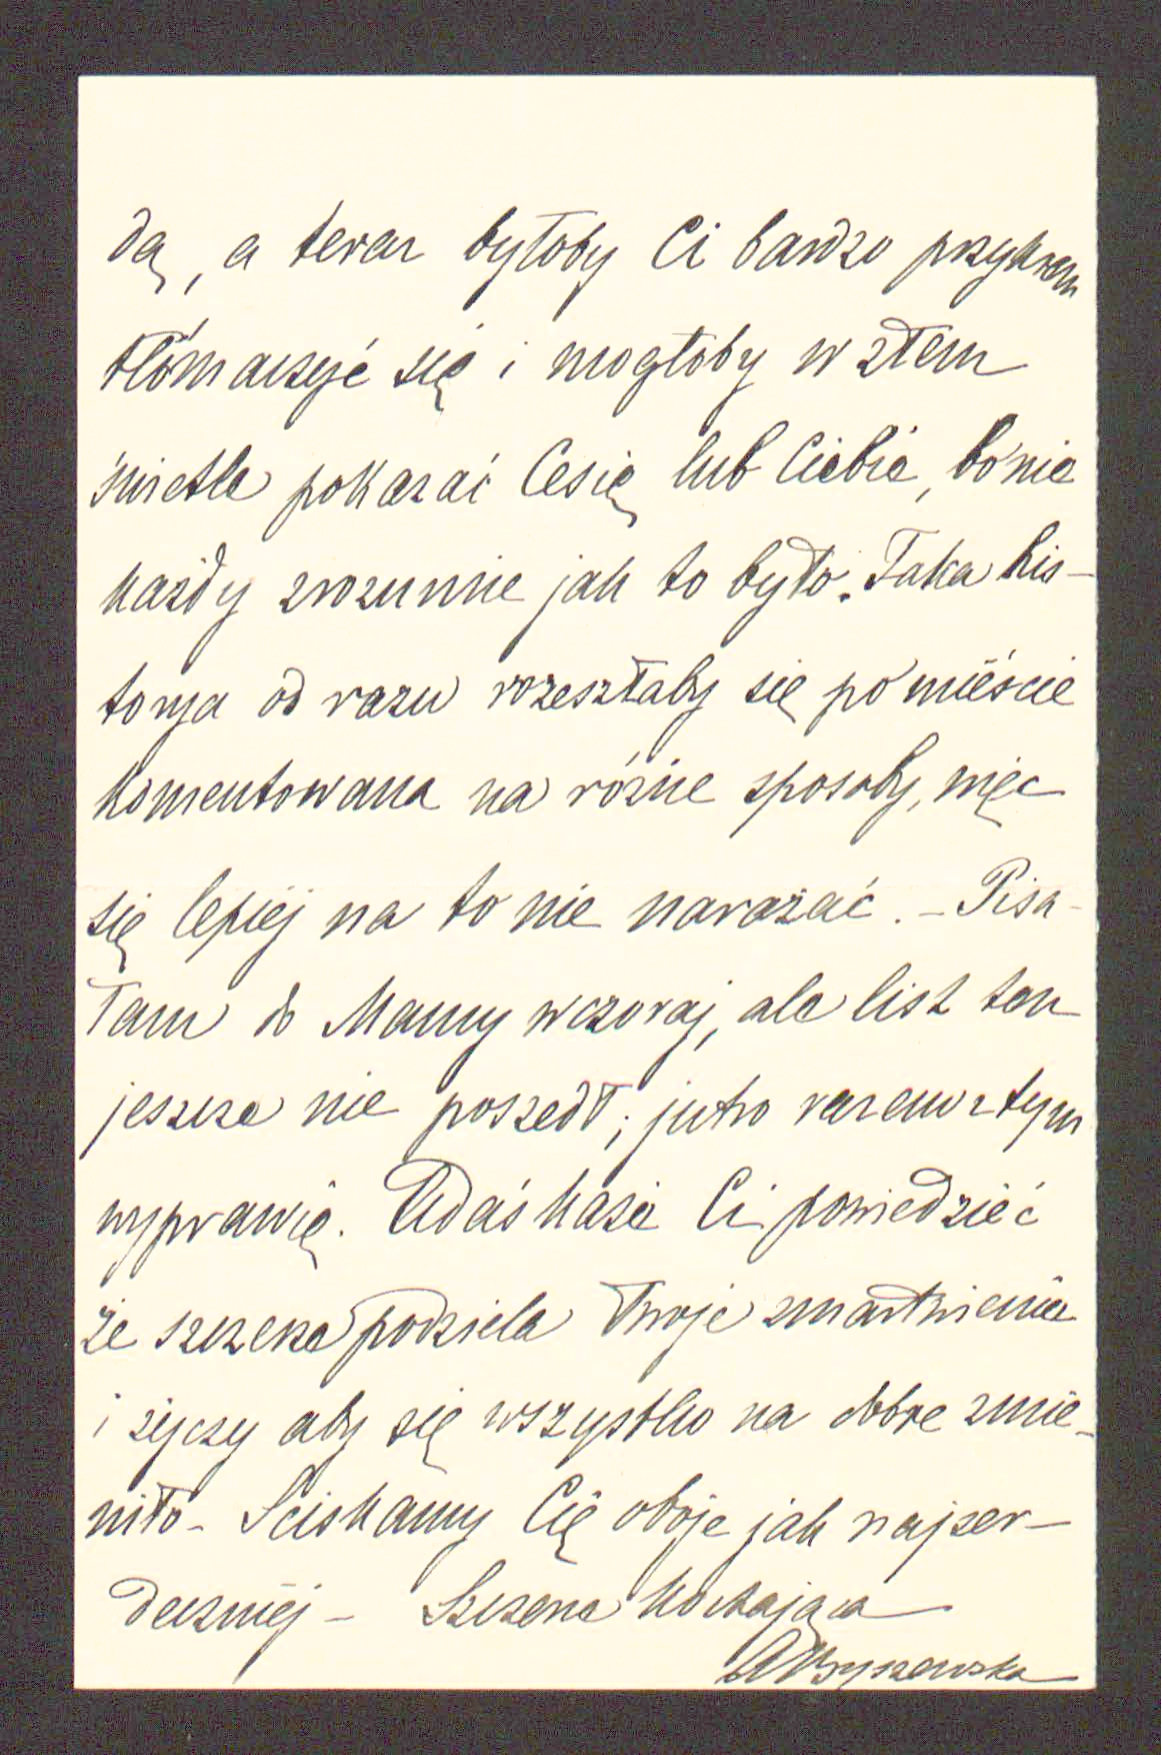 dą, a teraz byłoby Ci bardzo przykrem
tłómaczyć się i mogłoby w złem
świetle pokazać Cesię lub Ciebie, bo nie
każdy zrozumie jak to było. Taka his-
torya od razu rozeszłaby się po mieście
komentowana na różne sposoby, więc
się lepiej na to nie narażać. - Pisa-
łam do Mamy wczoraj, ale list ten
jeszcze nie poszedł; jutro razem z tym
wyprawię. Adaś każe Ci powiedzieć
że szczerze podziela Twoje zmartwienie
i życzy aby się wszystko na dobre zmie-
niło - Ściskamy Cię oboje jak najser-
deczniej - Szczerze kochająca